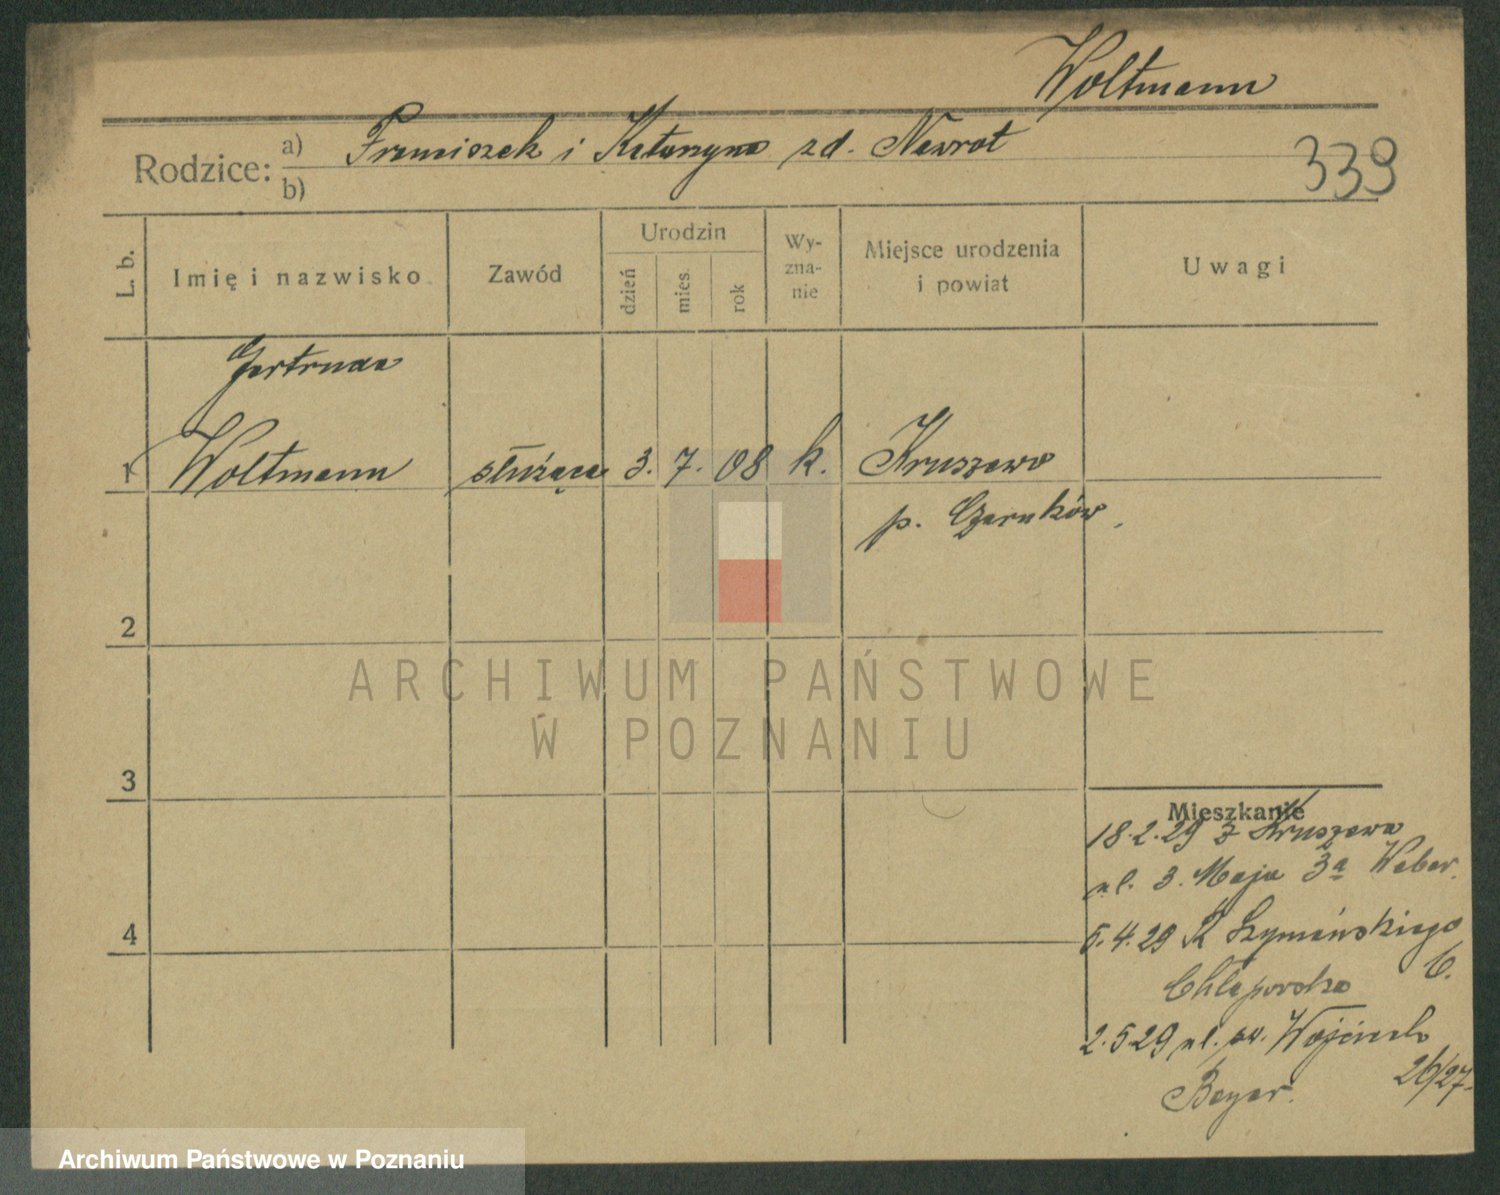 Woltmann
Rodzice: a) Franciszek i Katarzyna zd. Nawrot
b)
339
L. b.
Imię i nazwisko
Zawód
Urodzin
dzień
mies.
rok
Wy-
zna-
nie
Miejsce urodzenia
i powiat
Uwagi
Gertruda
1 Woltmann służąca 3. 7. 08 k. Kruszewo
p. Czarnków
2
3
4
Mieszkanie
18.2.29 z Kruszewa
ul. 3. Maja 3a Weber.
5.4.29 Szymańskiego
6.
2.5.29 ul. św. Wojciech
26/27.
Beyer.
ARCHIWUM PAŃSTWOWE
W POZNANIU
Archiwum Państwowe w Poznaniu